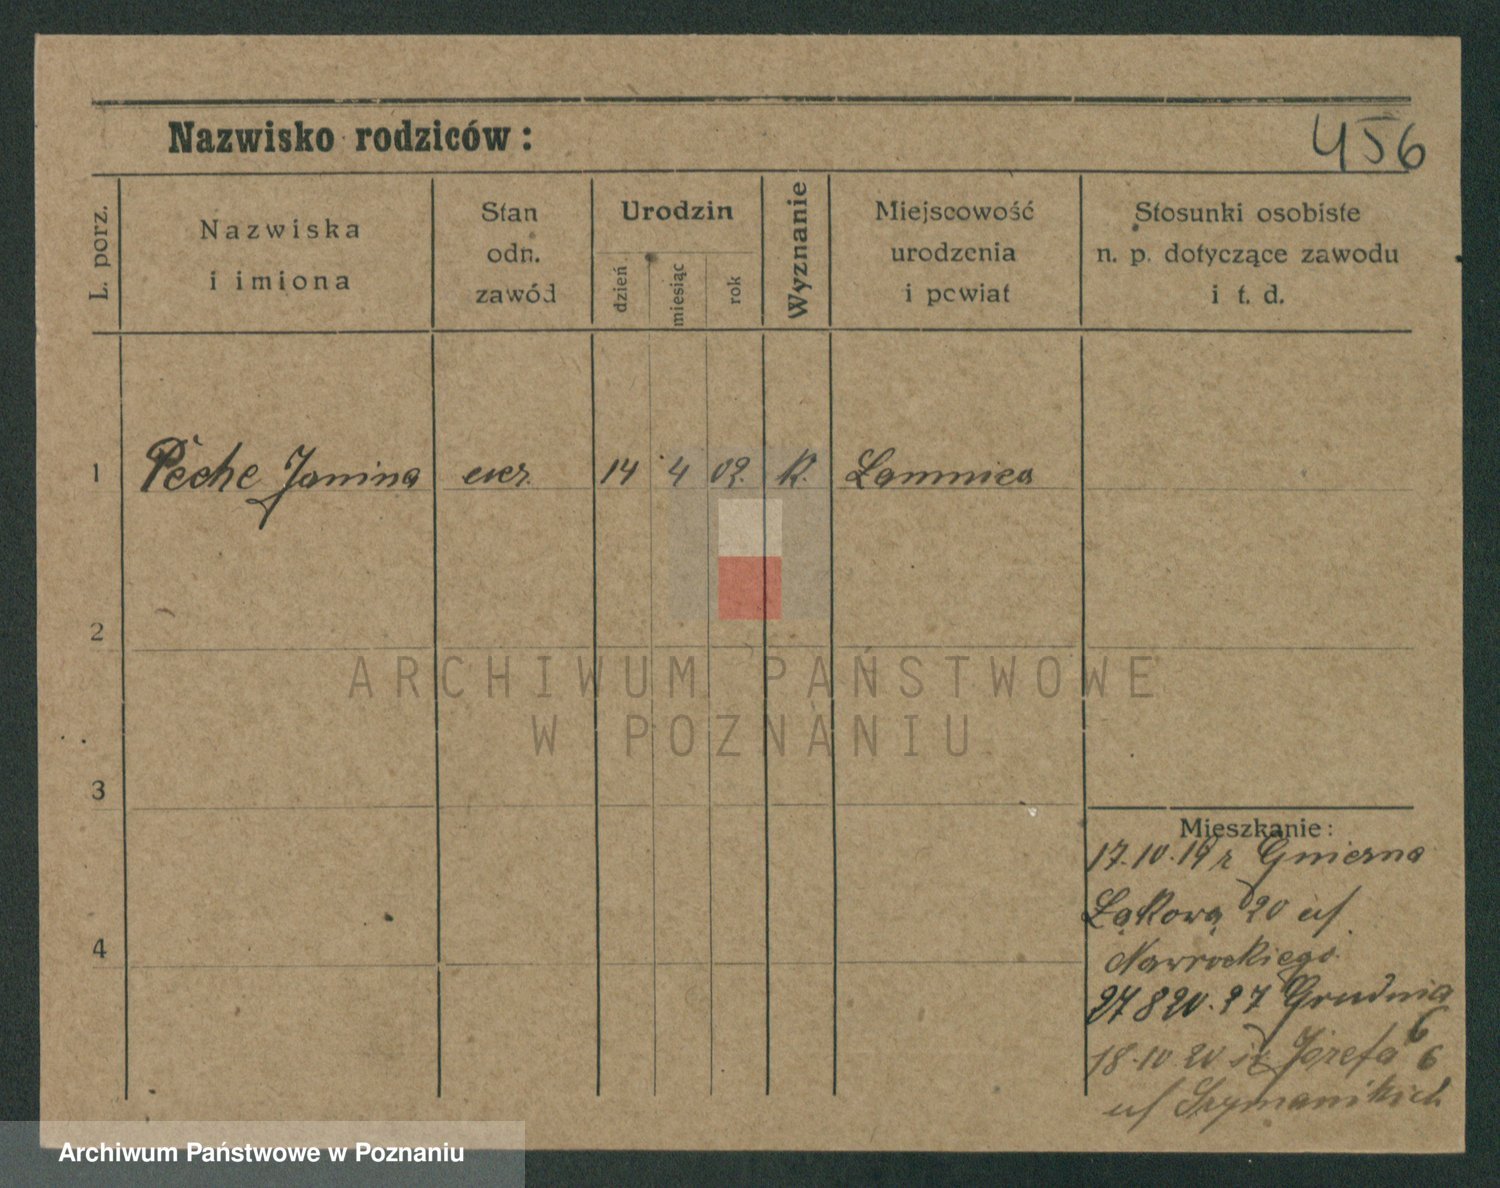 456
Nazwisko rodziców:
L. porz.
Nazwiska
i imiona
Stan
odn.
zawód
Urodzin
dzień
miesiąc
rok
Wyznanie
Miejscowość
urodzenia
i powiat
Stosunki osobiste
n. p. dotyczące zawodu
i t. d.
1 Peche Janina 14 4 02. K. Łamnica
2
3
4
Mieszkanie:
17.10.19 r Gniezna
Łąkowa 20
Nawrockiego
27 8 20. 27 Grudnia
6
18.10.20 Józefa 6
Szymanikich
ARCHIWUM PAŃSTWOWE
W POZNANIU
Archiwum Państwowe w Poznaniu